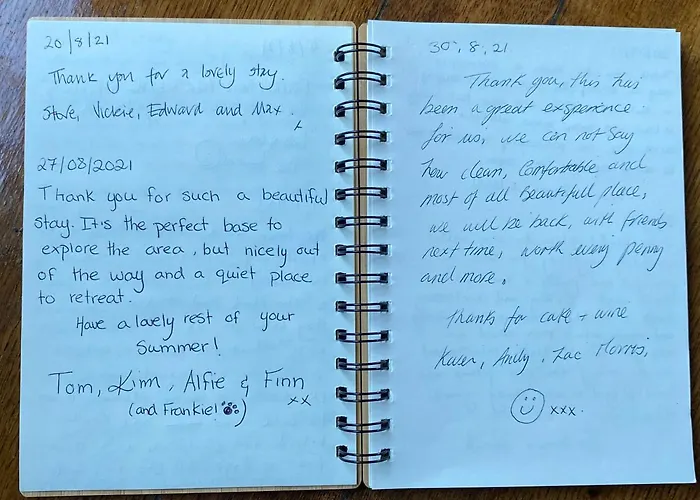 20/8/21
Thank you for a lovely stay.
Steve, Vickie, Edward and Max.
x
27/08/2021
Thank you for such a beautiful
stay. It's the perfect base to
explore the area, but nicely out
of the way and a quiet place
to retreat.
Have a lovely rest of your
Summer!
Tom, Kim, Alfie & Finn
xx
(and Frankie!)
30, 8, 21
Thank you, this has
been a great exsperience
for us, we can not say
how clean, Comfortable, and
most of all Beautifull place,
we will be back, with friends
next time, worth every penny
and more.
thanks for cake + wine
Karen, Andy, Zac Morris,
xxx.